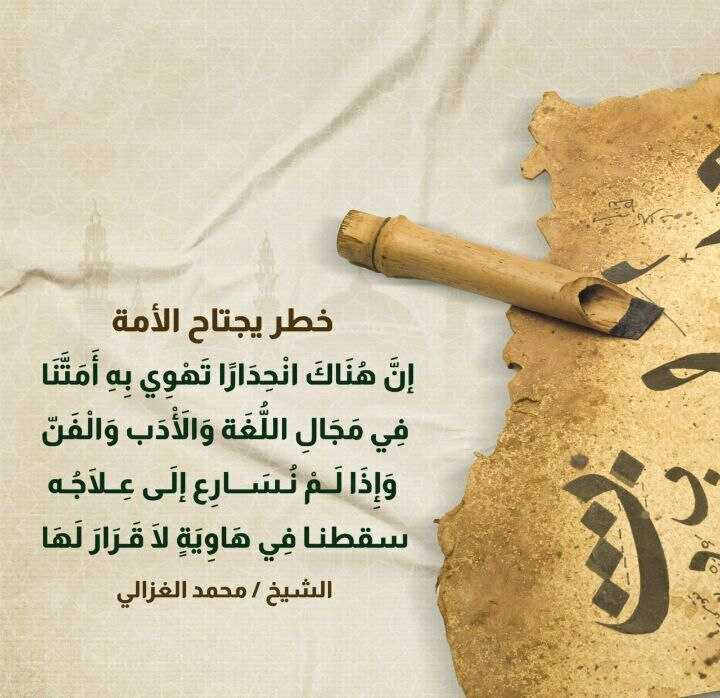 خطر يجتاح الأمة
إنَّ هُنَاكَ انْحِدَارًا تَهْوِي بِهِ أَمَتَّنَا
فِي مَجَالِ اللُّغَة وَالْأَدَب وَالْفَنّ
وَإِذَا لَـمْ نُـسَــارِع إلَـى عِــلاَجُـه
سـقطنـا فِي هَاوِيَةٍ لاَ قَـرَارَ لَهَا
الشيخ / محمد الغزالي